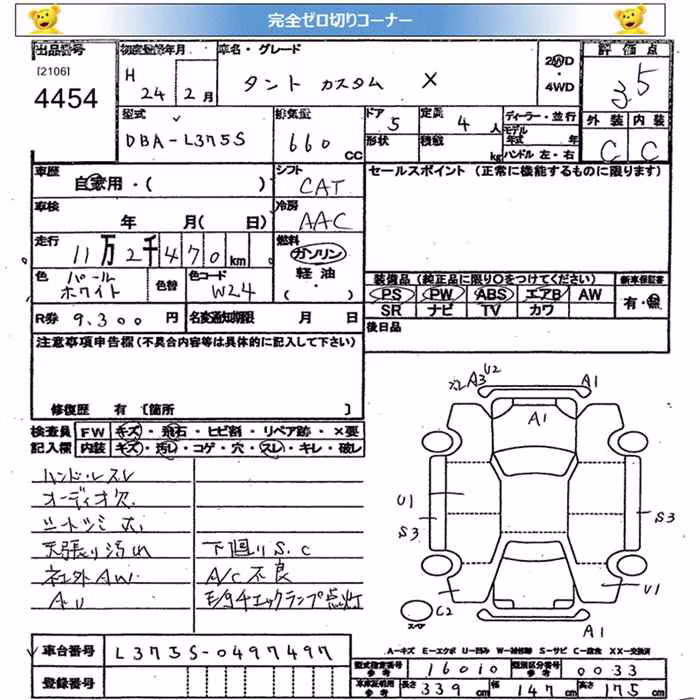 完全ゼロ切りコーナー
出品番号 初度登録年月 車名・グレード 2WD・4WD 評価点
[2106] 4454 H 24年 2月 タント カスタム X 3.5
型式 排気量 ドア 定員 ディーラー・並行 外装 内装
DBA-L375S 660cc 5 4人 形状 積載 kg モデル年式 年 ハンドル 左・右 C C
車歴 シフト セールスポイント (正常に機能するものに限ります)
自家用・( ) CAT
車検 冷房
年 月( 日) AAC
走行 燃料
11万2千470km ガソリン
色 色替 色コード 軽油
パールホワイト W24 ・( )
装備品 (純正品に限り○をつけてください) 新車保証書
PS PW ABS エアB AW 有・無
SR ナビ TV カワ
R券 9,300円 名変通知期限 月 日 後日品
注意事項申告欄 (不具合内容等は具体的に記入して下さい)
修復歴 有 [箇所 ]
検査員 FW キズ・飛石・ヒビ割・リペア跡・×要
記入欄 内装 キズ・汚レ・コゲ・穴・スレ・キレ・破レ
ハンドルスレ
オーディオ欠
シートシミ大
天張り汚れ 下回りS.C
社外AW A/C不良
AU モ/タチェックランプ点灯
A3 U2 A1
A1
U1 S3 S3
C2 U1
スペア A1
A=キズ E=エクボ U=凹み W=補修跡 S=サビ C=腐食 XX=交換済
車台番号 L375S-0497497 型式指定番号 参考 16010 類別区分番号 参考 0033
登録番号 車庫証明用 参考 長さ 339cm 幅 147cm 高さ 175cm